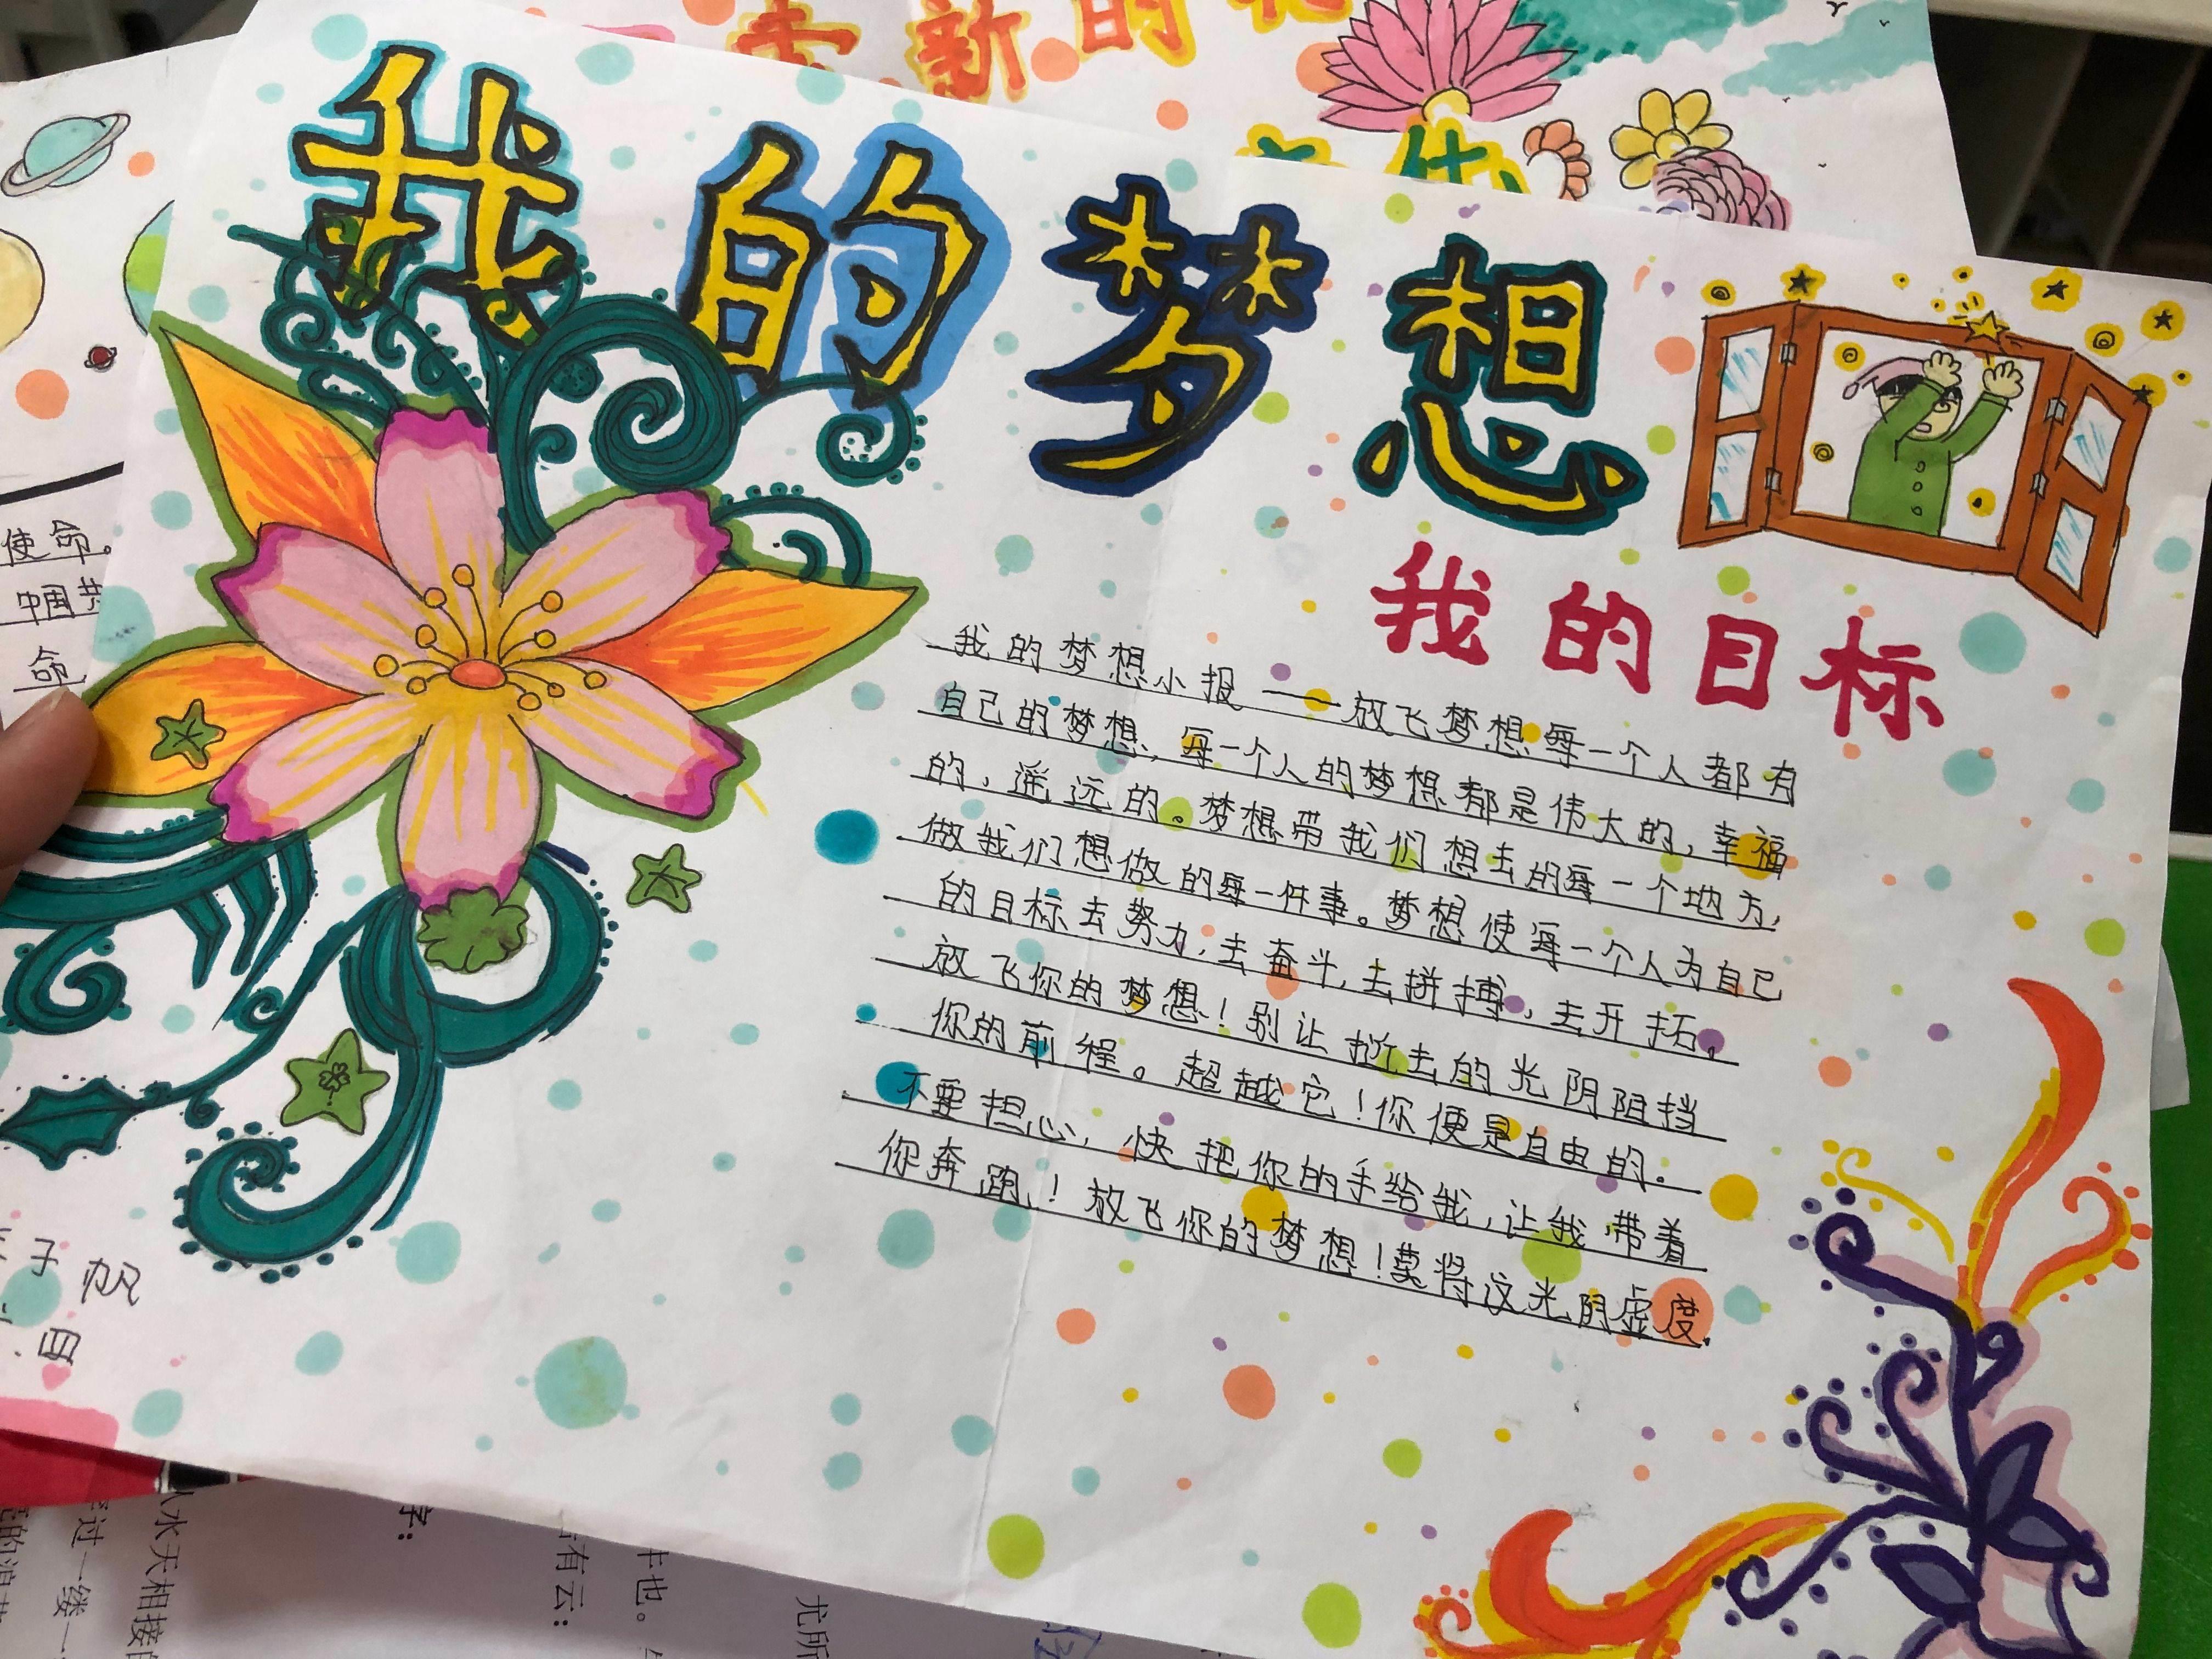 卖新的
我的梦想
我的目标
我的梦想小报——放飞梦想每一个人都有
自己的梦想，每一个人的梦想都是伟大的，幸福
的，遥远的。梦想带我们想去的每一个地方，
做我们想做的每一件事。梦想使每一个人为自己
的目标去努力，去奋斗，去拼搏，去开拓。
放飞你的梦想！别让逝去的光阴阻挡
你的前程。超越它！你便是自由的。
不要担心，快把你的手给我，让我带着
你奔跑！放飞你的梦想！莫将这光阴虚度。
使命。
中国
命
子帆
水天相接
过一缕一
字：
有云：
也。
尤所